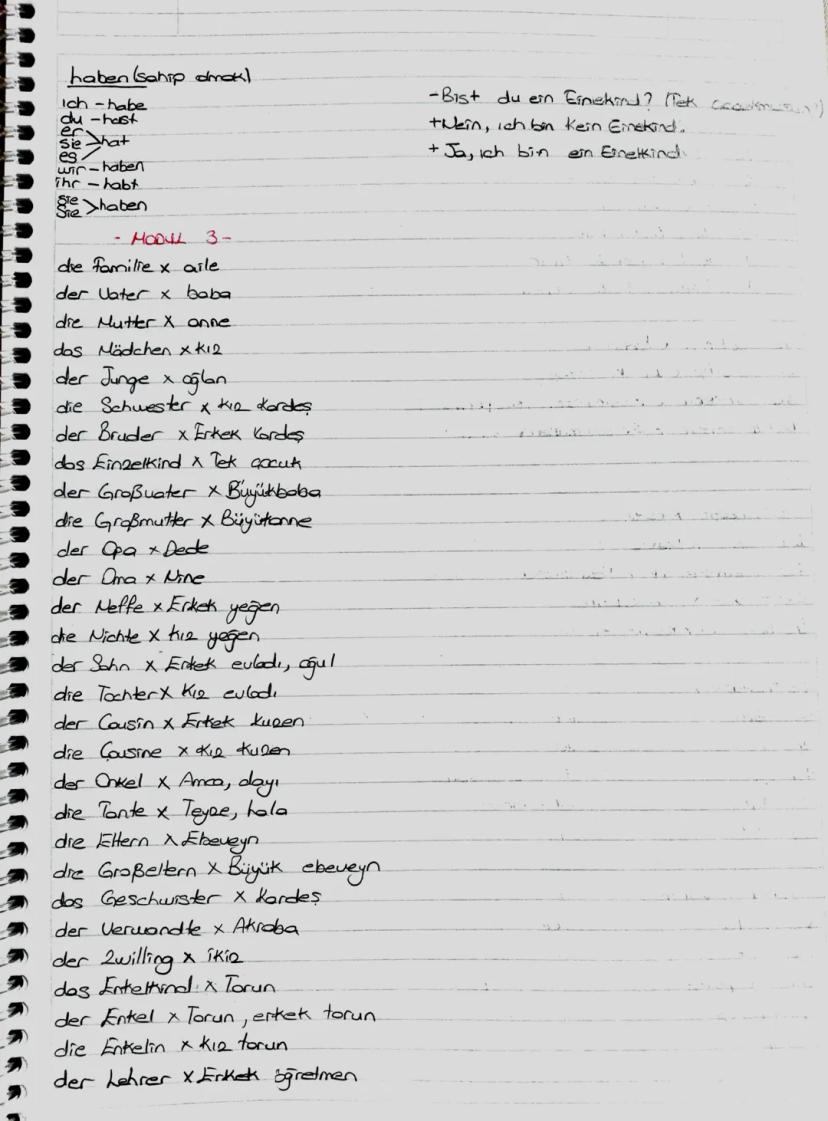 haben (sahip olmak)
ich - habe
du - hast
er
sie > hat
es
wir - haben
ihr - habt
sie
Sie > haben
- Bist du ein Einekind? (Tek
+ Nein, ich bin kein Einekind.
+ Ja, ich bin ein Einelkind.
- MODUL 3 -
die Familie x aile
der Vater x baba
die Mutter x anne
das Mädchen x kız
der Junge x oğlan
die Schwester x kız kardeş
der Bruder x Erkek kardeş
das Einzelkind x Tek çocuk
der Großvater x Büyükbaba
die Großmutter x Büyükanne
der Opa x Dede
der Oma x Nine
der Neffe x Erkek yeğen
die Nichte x kız yeğen
der Sohn x Erkek evladı, oğul
die Tochter x Kız evladı
der Cousin x Erkek kuzen
die Cousine x kız kuzen
der Onkel x Amca, dayı
die Tante x Teyze, hala
die Eltern x Ebeveyn
die Großeltern x Büyük ebeveyn
das Geschwister x Kardeş
der Verwandte x Akraba
der Zwilling x ikiz
das Enkelkind x Torun
der Enkel x Torun, erkek torun
die Enkelin x kız torun
der Lehrer x Erkek öğretmen